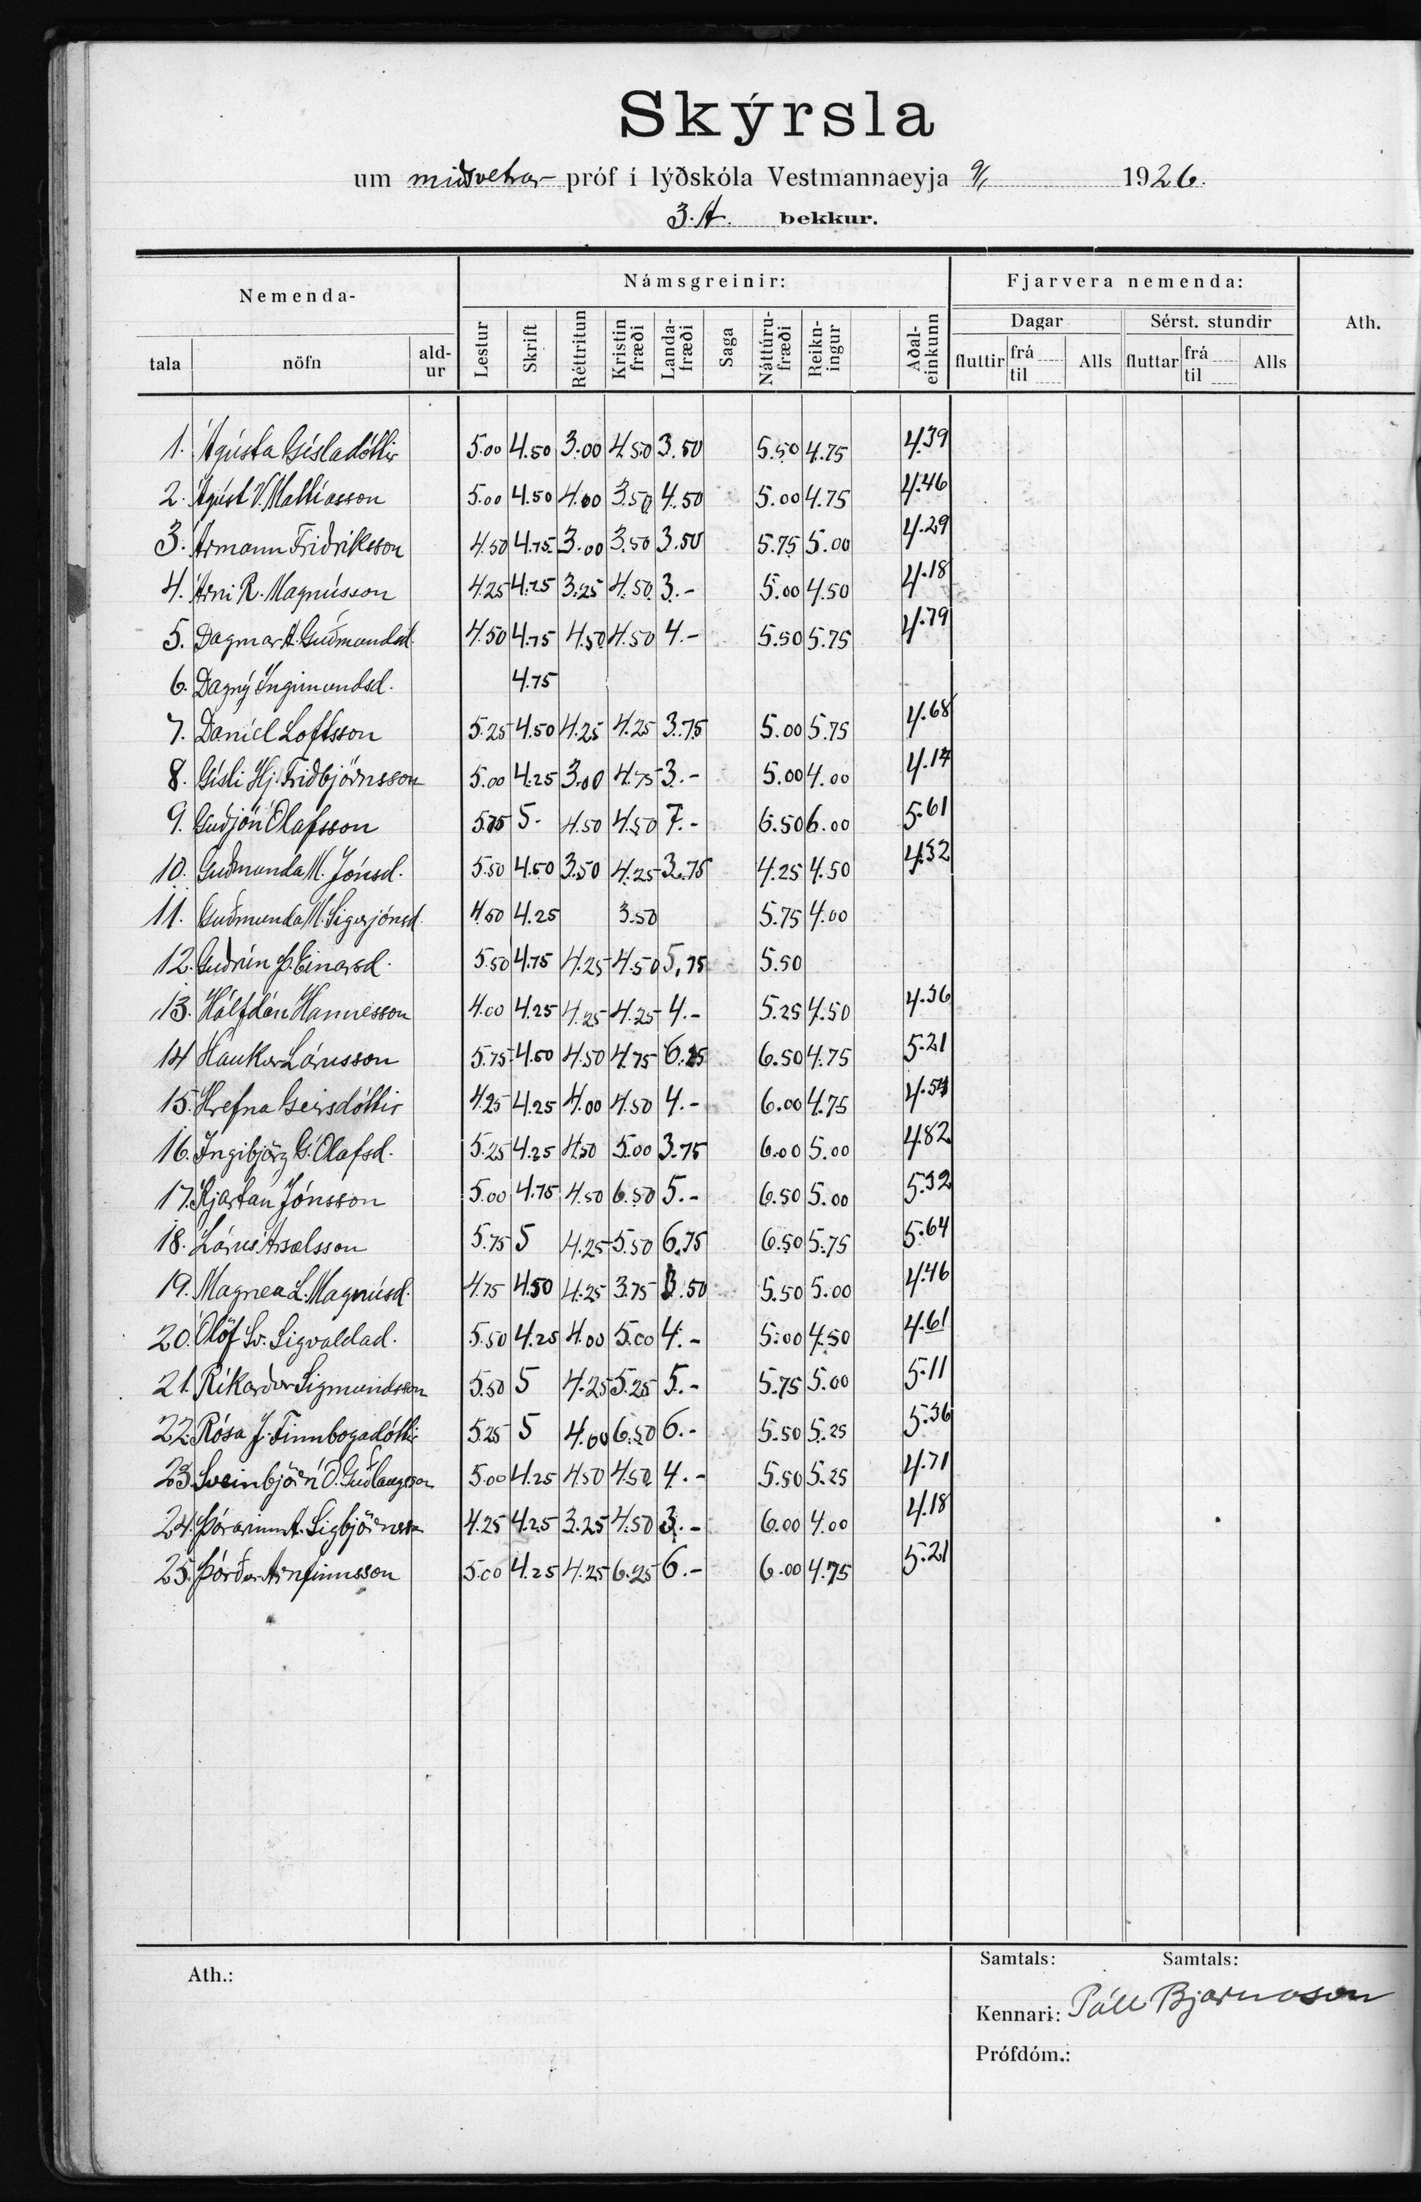 Skýrsla
um miðsvetrar próf í lýðskóla Vestmannaeyja 9/1 1926.
3. A. bekkur.
Nemenda- Námsgreinir: Fjarvera nemenda: Ath.
Dagar Sérst. stundir
tala nöfn ald-ur Lestur Skrift Réttritun Kristin fræði Landa-fræði Saga Náttúru-fræði Reikn-ingur Aðal-einkunn fluttir frá til Alls fluttar frá til Alls
1. Ágústa Gísladóttir 5.00 4.50 3.00 4.50 3.50 5.50 4.75 4.39
2. Ágúst V. Matthíasson 5.00 4.50 4.00 3.50 4.50 5.00 4.75 4.46
3. Ármann Friðriksson 4.50 4.75 3.00 3.50 3.50 5.75 5.00 4.29
4. Árni R. Magnússon 4.25 4.25 3.25 4.50 3.- 5.00 4.50 4.18
5. Dagmar A. Guðmundsd. 4.50 4.75 4.50 4.50 4.- 5.50 5.75 4.79
6. Dagný Ingimundsd. 4.75
7. Daníel Loftsson 5.25 4.50 4.25 4.25 3.75 5.00 5.75 4.68
8. Gísli Hj. Friðbjörnsson 5.00 4.25 3.00 4.75 3.- 5.00 4.00 4.14
9. Guðjón Ólafsson 5.75 5.- 4.50 4.50 7.- 6.50 6.00 5.61
10. Guðmunda M. Jónsd. 5.50 4.50 3.50 4.25 3.75 4.25 4.50 4.32
11. Guðmunda M. Sigurjónsd. 4.50 4.25 3.50 5.75 4.00
12. Guðrún Þ. Einarsd. 5.50 4.75 4.25 4.50 5.75 5.50
13. Hálfdán Hannesson 4.00 4.25 4.25 4.25 4.- 5.25 4.50 4.36
14 Haukur Lárusson 5.75 4.50 4.50 4.75 6.25 6.50 4.75 5.21
15. Hrefna Geirsdóttir 4.25 4.25 4.00 4.50 4.- 6.00 4.75 4.54
16. Ingibjörg G. Ólafsd. 5.25 4.25 4.50 5.00 3.75 6.00 5.00 4.82
17. Kjartan Jónsson 5.00 4.75 4.50 6.50 5.- 6.50 5.00 5.32
18. Lárus Ársælsson 5.75 5 4.25 5.50 6.75 6.50 5.75 5.64
19. Magnea L. Magnúsd. 4.75 4.50 4.25 3.75 3.50 5.50 5.00 4.46
20. Ólöf Sv. Sigvaldad. 5.50 4.25 4.00 5.00 4.- 5.00 4.50 4.61
21. Ríkarður Sigmundsson 5.50 5 4.25 5.25 5.- 5.75 5.00 5.11
22. Rósa J. Finnbogadóttir 5.25 5 4.00 6.50 6.- 5.50 5.25 5.36
23. Sveinbjörn Ó. Guðlaugsson 5.00 4.25 4.50 4.50 4.- 5.50 5.25 4.71
24. Þórarinn A. Sigbjörnsson 4.25 4.25 3.25 4.50 3.- 6.00 4.00 4.18
25. Þórður Arnfinnsson 5.00 4.25 4.25 6.25 6.- 6.00 4.75 5.21
Samtals: Samtals:
Ath.:
Kennari: Páll Bjarnason
Prófdóm.: